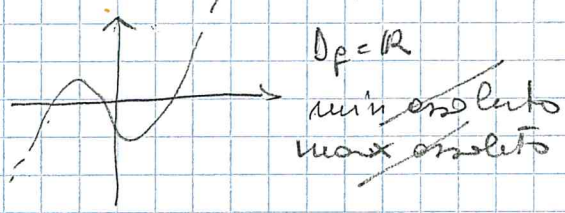 Df = ℝ
min assoluto
max assoluto